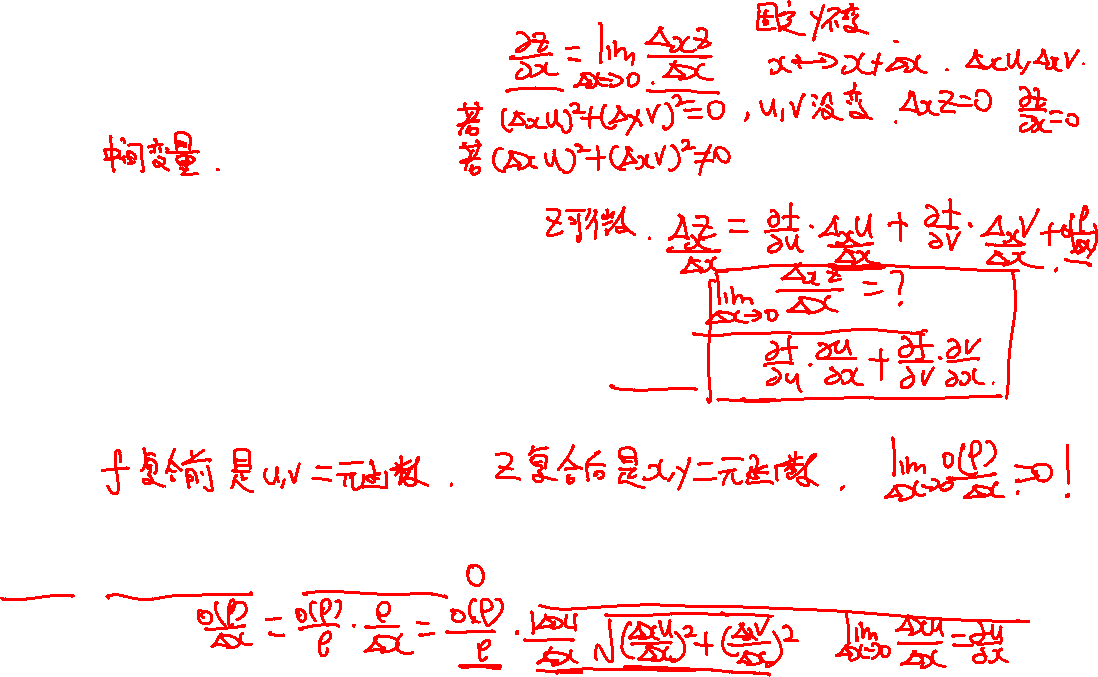 固定y不变
∂z/∂x = lim Δx→0 Δxz/Δx   x↔x+Δx. Δxu, Δxv.
若 (Δxu)²+(Δxv)²=0, u,v没变. Δxz=0 ∂z/∂x=0
中间变量.
若 (Δxu)²+(Δxv)²≠0
z可微. Δxz/Δx = ∂f/∂u · Δxu/Δx + ∂f/∂v · Δxv/Δx + o(ρ)/Δx
lim Δx→0 Δxz/Δx = ?
∂f/∂u · ∂u/∂x + ∂f/∂v · ∂v/∂x.
f复合前是u,v二元函数. z复合后是x,y二元函数. lim Δx→0 o(ρ)/Δx = 0!
0
o(ρ)/Δx = o(ρ)/ρ · ρ/Δx = o(ρ)/ρ · |Δx|/Δx √(Δxu/Δx)²+(Δxv/Δx)²   lim Δx→0 Δxu/Δx = ∂u/∂x